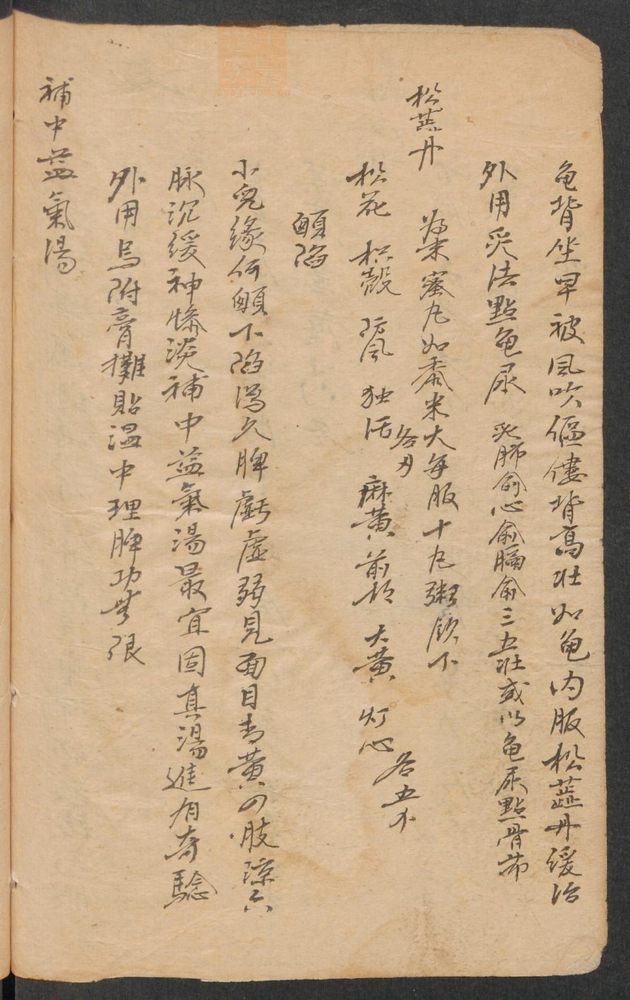 龟背坐早被风吹傴僂背高壮如龟内服松蕋丹缓治
外用灸法點龟尿 灸肺俞心俞膈俞三五壮或以龟尿點骨节
松蕋丹 为末蜜丸如黍米大每服十丸粥飲下
松花 枳殼 防风 独活 各一两 麻黄 前胡 大黄 灯心 各五分
顖陷
小兒緣何顖下陷瀉久脾虧虚弱見面目青黄四肢凉六
脉沉缓神惨淡補中益氣湯最宜固真湯進有奇驗
外用烏附膏攤貼温中理脾功無限
補中益氣湯